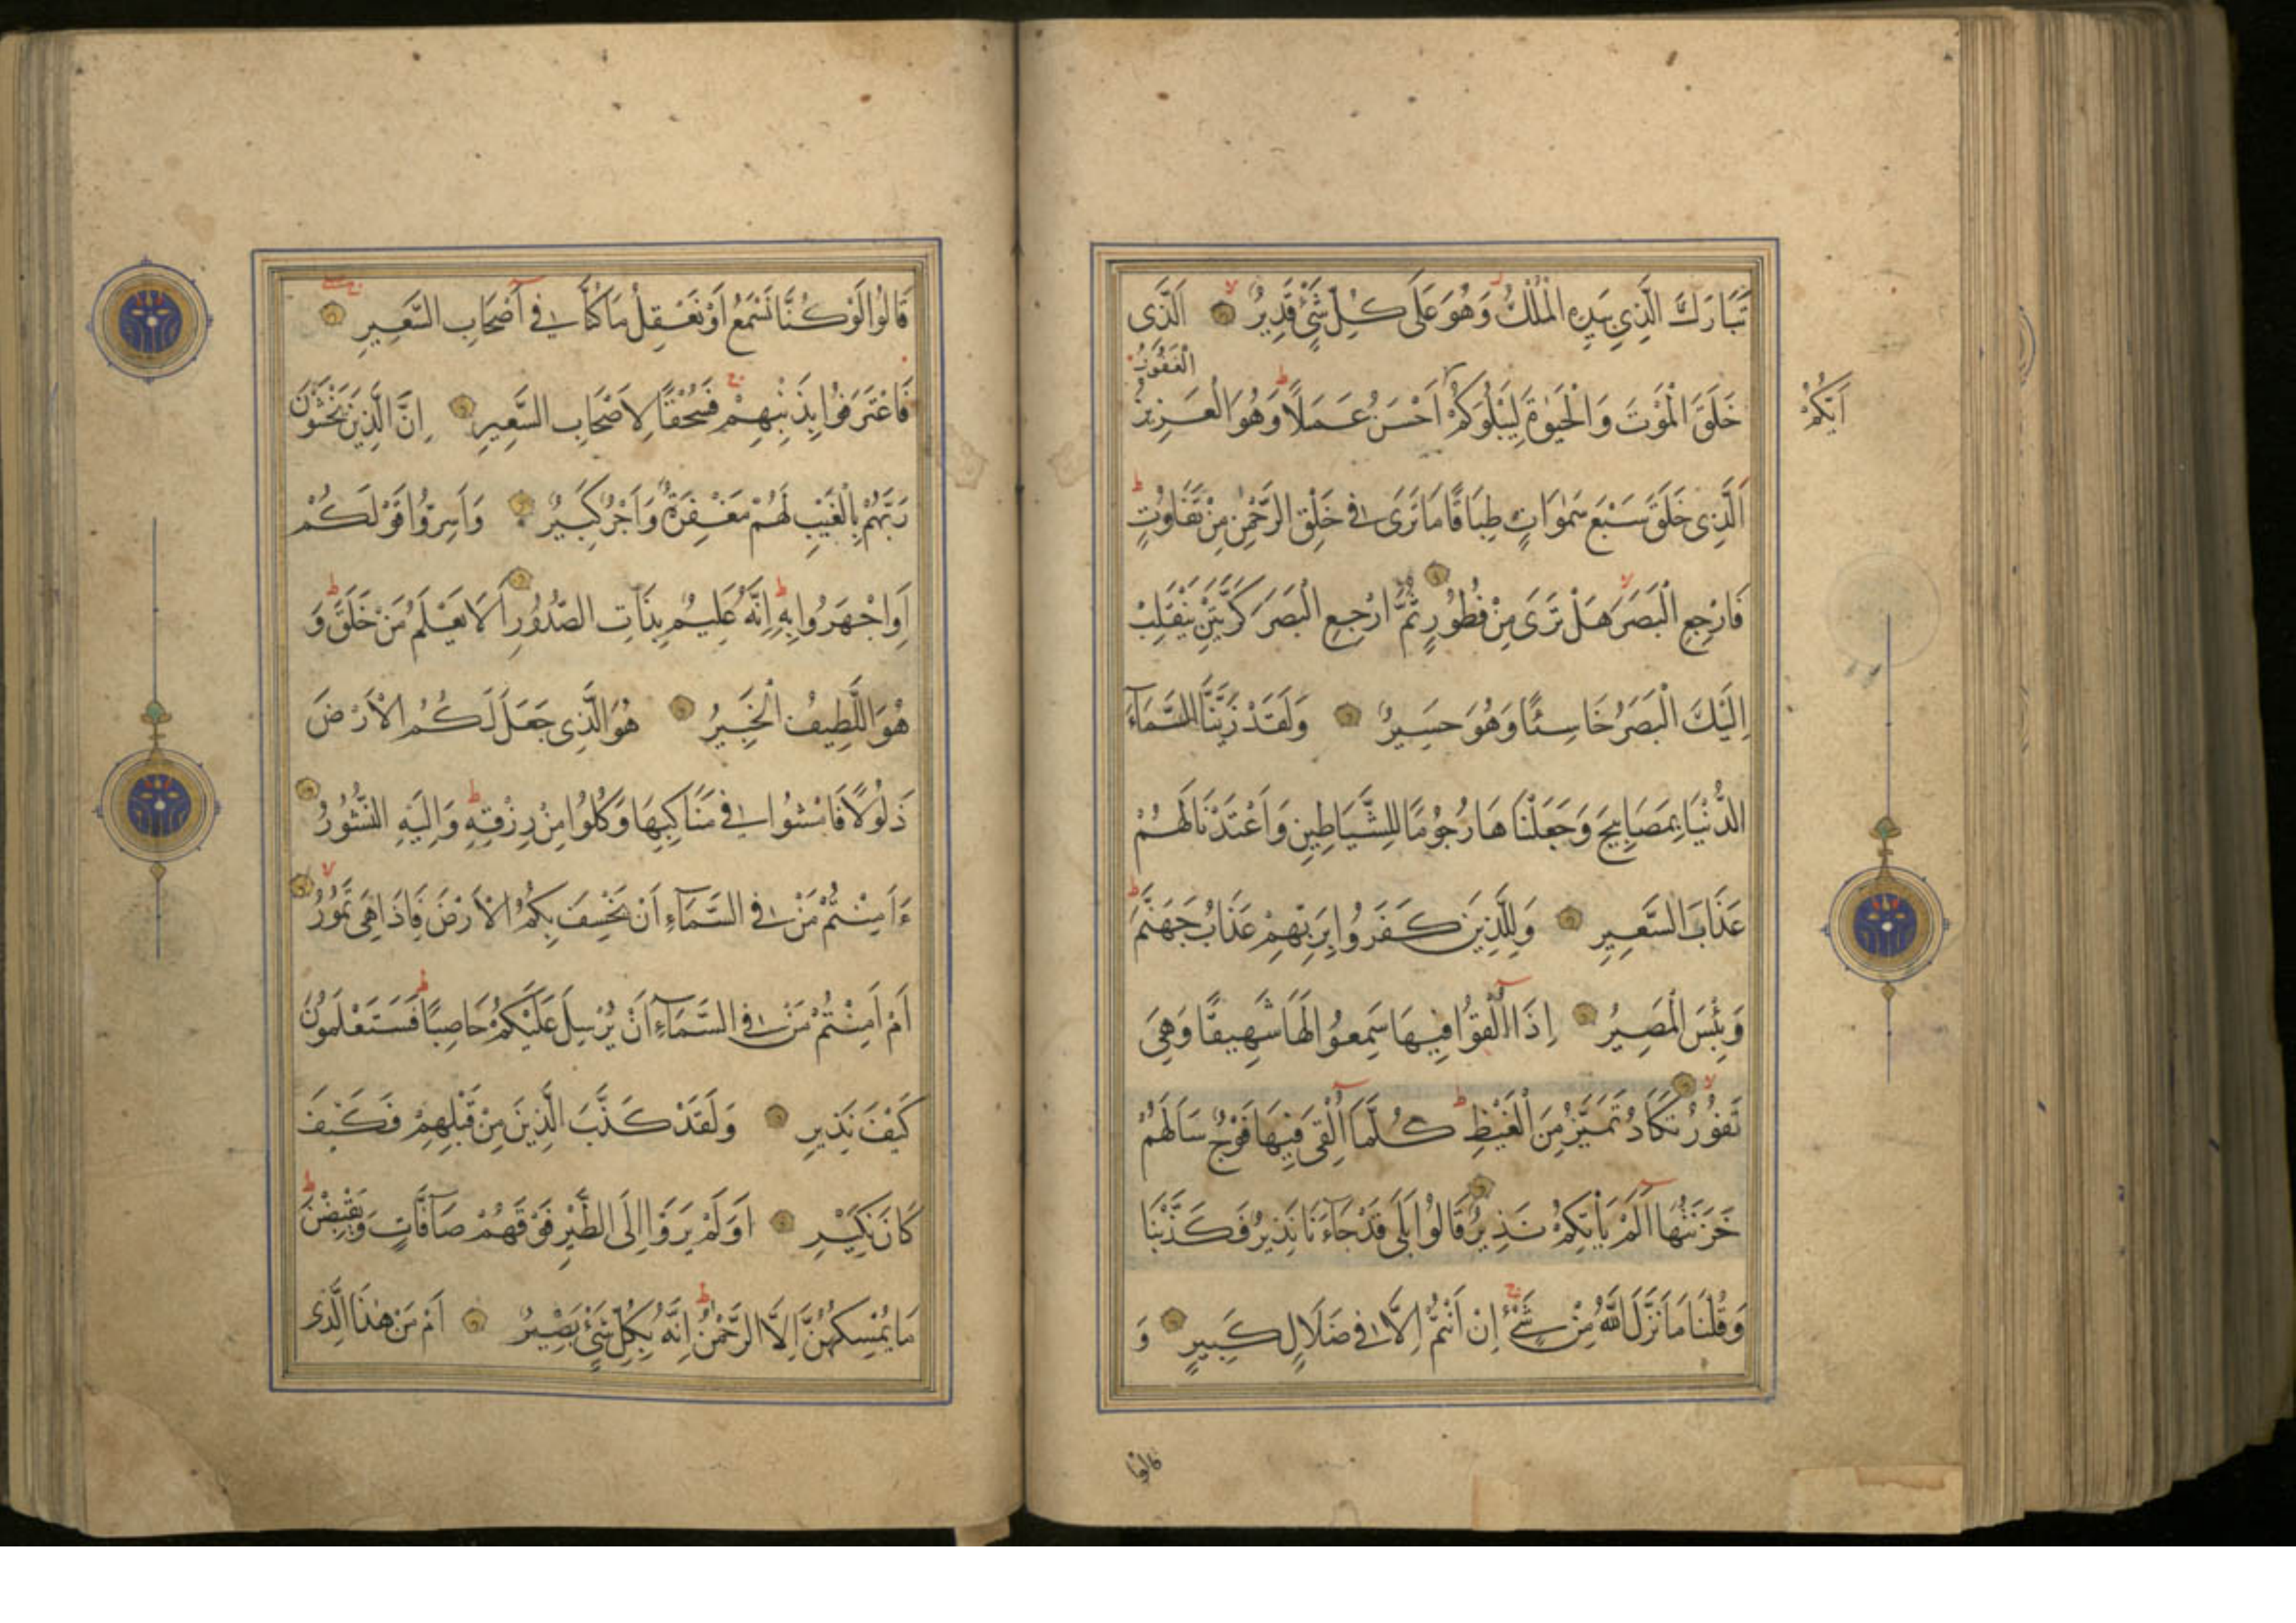 تَبَارَكَ الَّذِي بِيَدِهِ الْمُلْكُ وَهُوَ عَلَى كُلِّ شَيْءٍ قَدِيرٌ الَّذِي
الْغَفُورُ
خَلَقَ الْمَوْتَ وَالْحَيٰوةَ لِيَبْلُوَكُمْ اَحْسَنُ عَمَلًا وَهُوَ الْعَزِيزُ
اَيُّكُمْ
اَلَّذِي خَلَقَ سَبْعَ سَمٰوَاتٍ طِبَاقًا مَا تَرَى فِي خَلْقِ الرَّحْمٰنِ مِنْ تَفَاوُتٍ
فَارْجِعِ الْبَصَرَ هَلْ تَرَى مِنْ فُطُورٍ ثُمَّ ارْجِعِ الْبَصَرَ كَرَّتَيْنِ يَنْقَلِبْ
اِلَيْكَ الْبَصَرُ خَاسِئًا وَهُوَ حَسِيرٌ وَلَقَدْ زَيَّنَّا السَّمَآءَ
الدُّنْيَا بِمَصَابِيحَ وَجَعَلْنَاهَا رُجُومًا لِلشَّيَاطِينِ وَاَعْتَدْنَا لَهُمْ
عَذَابَ السَّعِيرِ وَلِلَّذِينَ كَفَرُوا بِرَبِّهِمْ عَذَابُ جَهَنَّمَ
وَبِئْسَ الْمَصِيرُ اِذَا اُلْقُوا فِيهَا سَمِعُوا لَهَا شَهِيقًا وَهِيَ
تَفُورُ تَكَادُ تَمَيَّزُ مِنَ الْغَيْظِ كُلَّمَا اُلْقِيَ فِيهَا فَوْجٌ سَاَلَهُمْ
خَزَنَتُهَا اَلَمْ يَأْتِكُمْ نَذِيرٌ قَالُوا بَلَى قَدْ جَآءَنَا نَذِيرٌ فَكَذَّبْنَا
وَقُلْنَا مَا نَزَّلَ اللّٰهُ مِنْ شَيْءٍ اِنْ اَنْتُمْ اِلَّا فِي ضَلَالٍ كَبِيرٍ وَ
قَالُوا لَوْ كُنَّا نَسْمَعُ اَوْ نَعْقِلُ مَا كُنَّا فِي اَصْحَابِ السَّعِيرِ
فَاعْتَرَفُوا بِذَنْبِهِمْ فَسُحْقًا لِاَصْحَابِ السَّعِيرِ اِنَّ الَّذِينَ يَخْشَوْنَ
رَبَّهُمْ بِالْغَيْبِ لَهُمْ مَغْفِرَةٌ وَاَجْرٌ كَبِيرٌ وَاَسِرُّوا قَوْلَكُمْ
اَوِ اجْهَرُوا بِهِ اِنَّهُ عَلِيمٌ بِذَاتِ الصُّدُورِ اَلَا يَعْلَمُ مَنْ خَلَقَ وَ
هُوَ اللَّطِيفُ الْخَبِيرُ هُوَ الَّذِي جَعَلَ لَكُمُ الْاَرْضَ
ذَلُولًا فَامْشُوا فِي مَنَاكِبِهَا وَكُلُوا مِنْ رِزْقِهِ وَاِلَيْهِ النُّشُورُ
ءَاَمِنْتُمْ مَنْ فِي السَّمَآءِ اَنْ يَخْسِفَ بِكُمُ الْاَرْضَ فَاِذَا هِيَ تَمُورُ
اَمْ اَمِنْتُمْ مَنْ فِي السَّمَآءِ اَنْ يُرْسِلَ عَلَيْكُمْ حَاصِبًا فَسَتَعْلَمُونَ
كَيْفَ نَذِيرِ وَلَقَدْ كَذَّبَ الَّذِينَ مِنْ قَبْلِهِمْ فَكَيْفَ
كَانَ نَكِيرِ اَوَلَمْ يَرَوْا اِلَى الطَّيْرِ فَوْقَهُمْ صَآفَّاتٍ وَيَقْبِضْنَ
مَا يُمْسِكُهُنَّ اِلَّا الرَّحْمٰنُ اِنَّهُ بِكُلِّ شَيْءٍ بَصِيرٌ اَمْ مَنْ هٰذَا الَّذِي